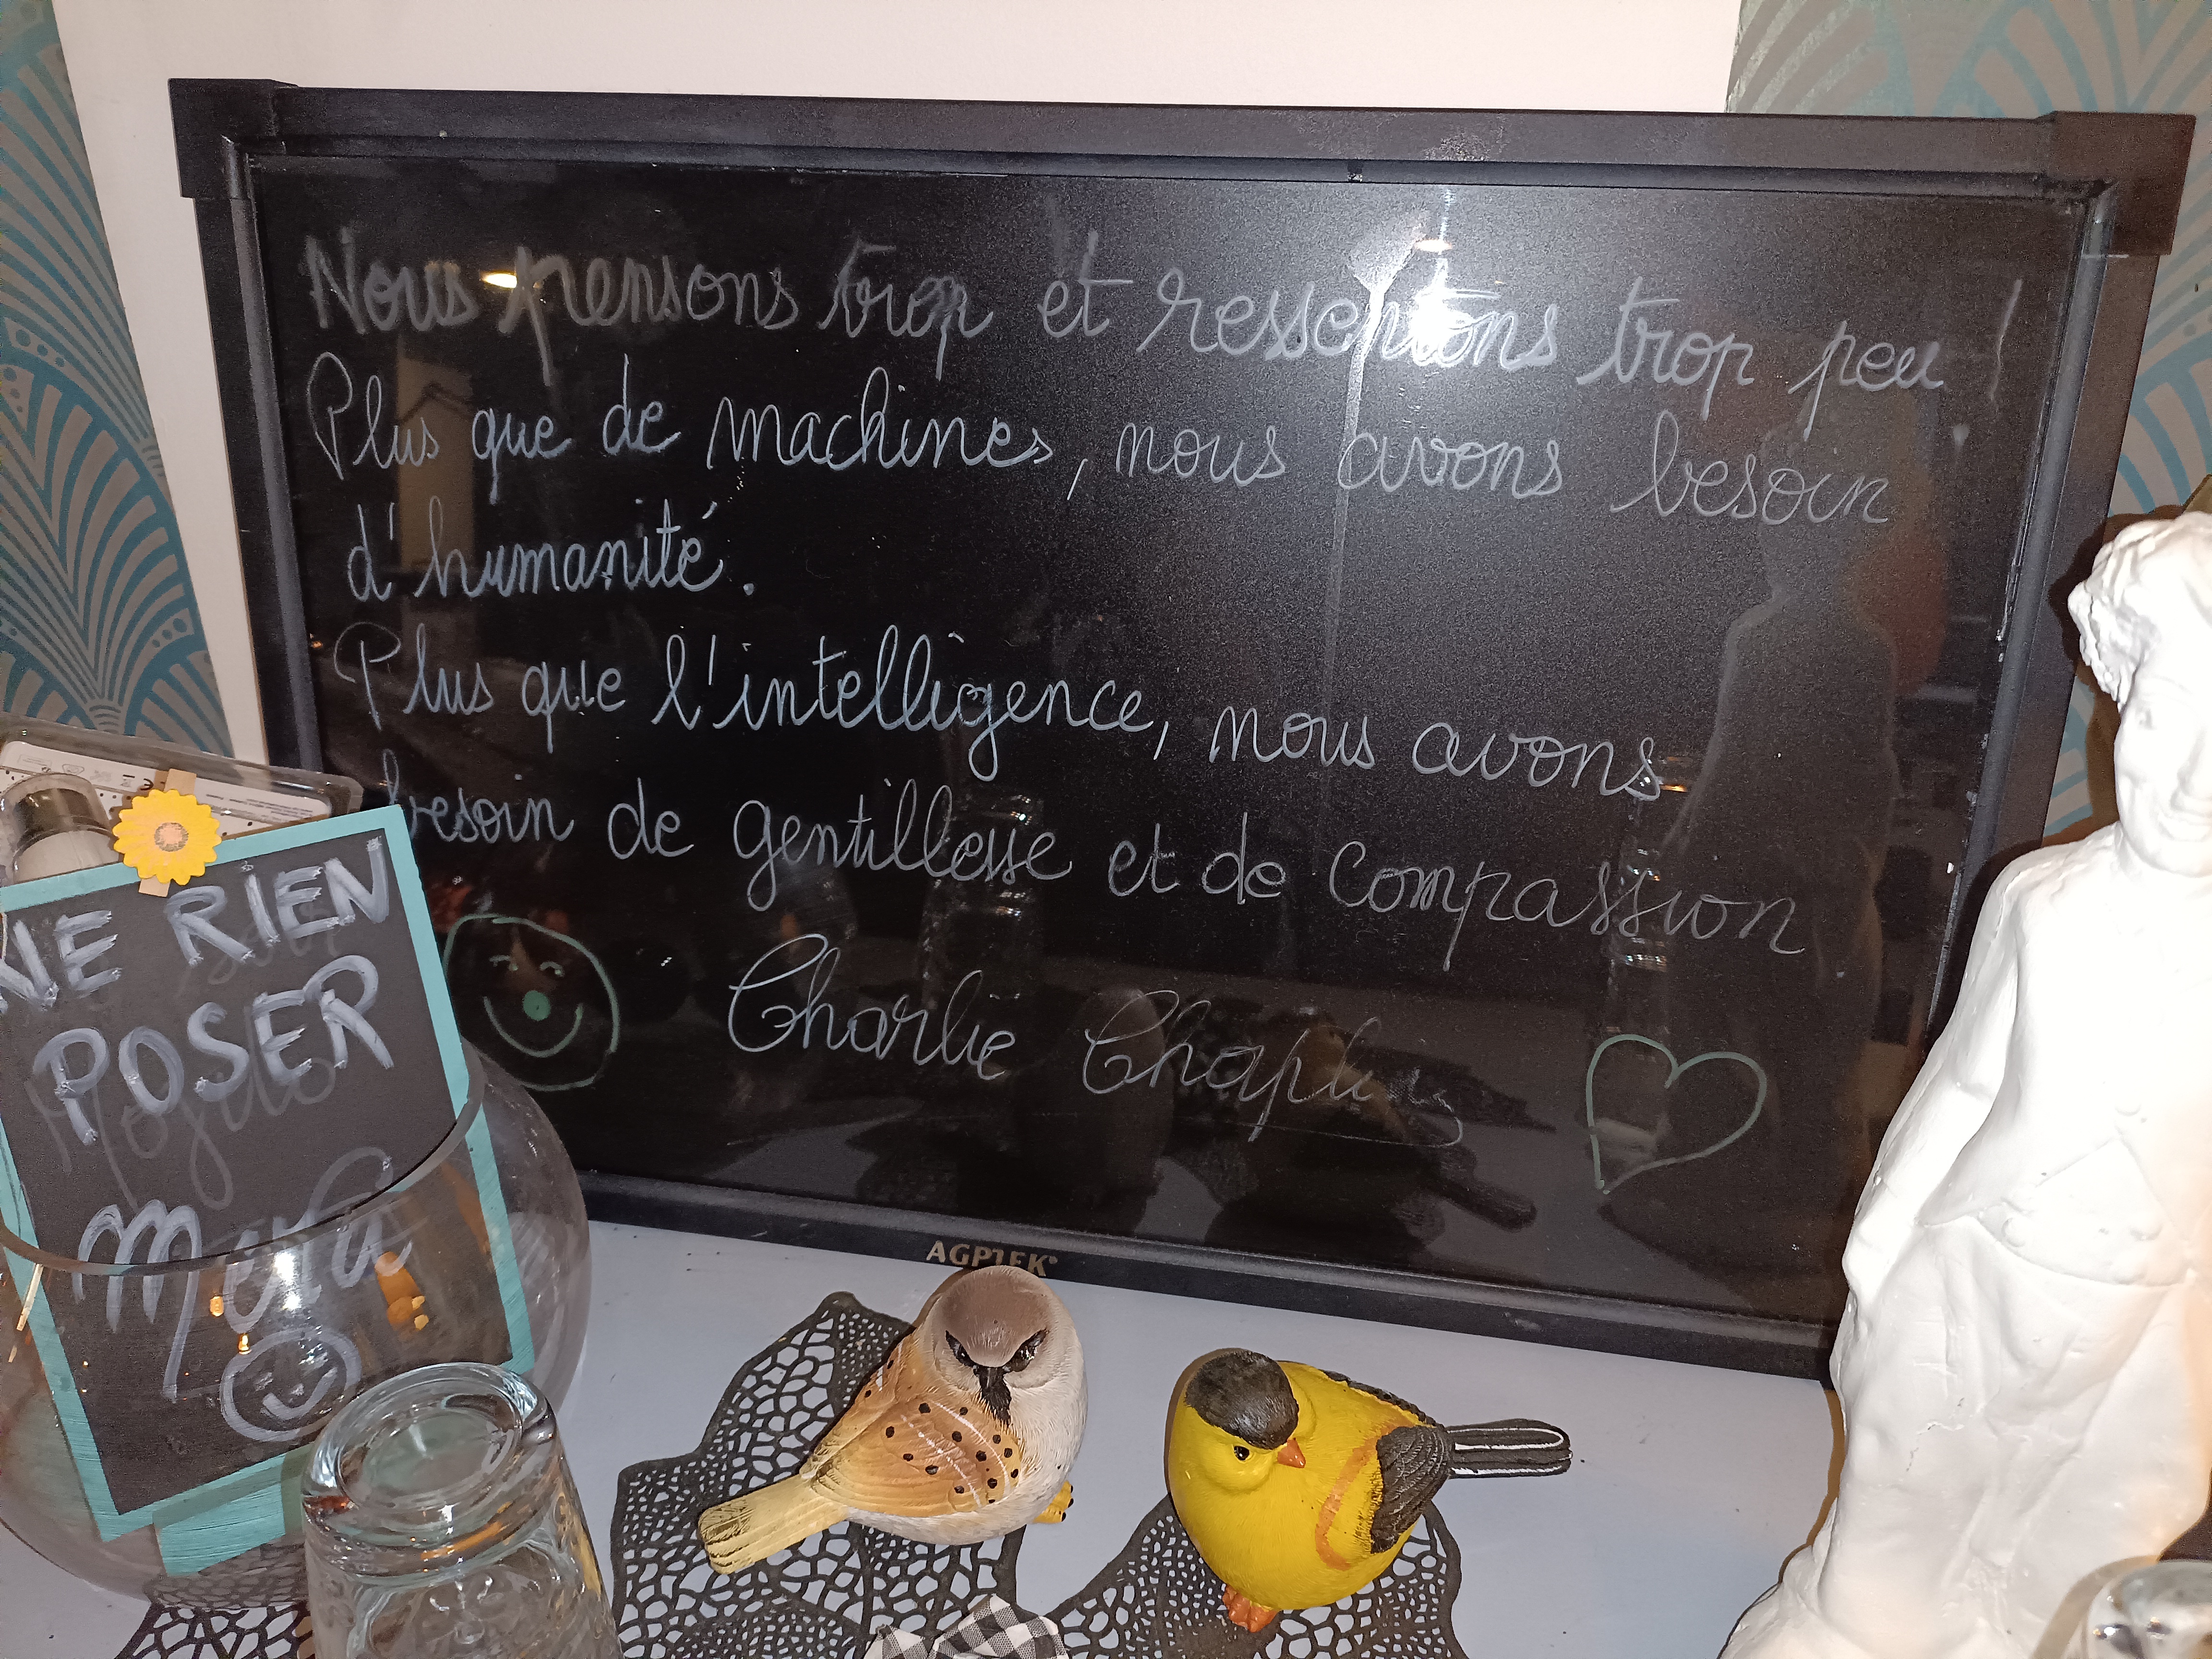 Nous pensons trop et ressentons trop peu !
Plus que de machines, nous avons besoin
d'humanité.
Plus que l'intelligence, nous avons
besoin de gentillesse et de Compassion
Charlie Chaplin
AGPTEK
NE RIEN
POSER
Mojito